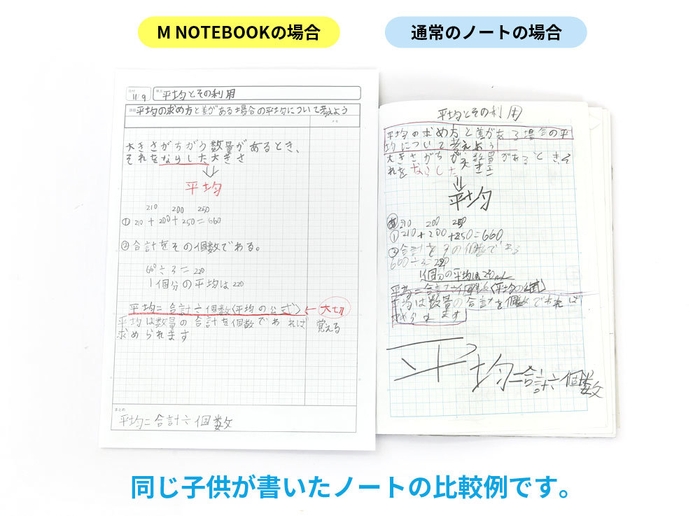 M NOTEBOOKの場合
通常のノートの場合
11 9
平均とその利用
平均の求め方と差がある場合の平均について考えよう
大きさがちがう数量があるとき、
それをならした大きさ
平均
210 200 250
① 210+200+250=660
② 合計をその個数でわる。
660÷3=220
1個分の平均は220
平均=合計÷個数(平均の公式)
大切
平均は数量の合計を個数でわれば
覚える
求められます
平均=合計÷個数
平均とその利用
平均の求め方と差がある場合の平
均について考えよう
大きさがちがう数量があるときそ
れをならした大きさ
平均
210 200 250
① 210+200+250=660
② 合計をその個数でわる
600÷3=220
1個分の平均は220
平均=合計÷個数(平均の公式)
平均は数量の合計を個数でわれば
求められます
平均=合計÷個数
同じ子供が書いたノートの比較例です。